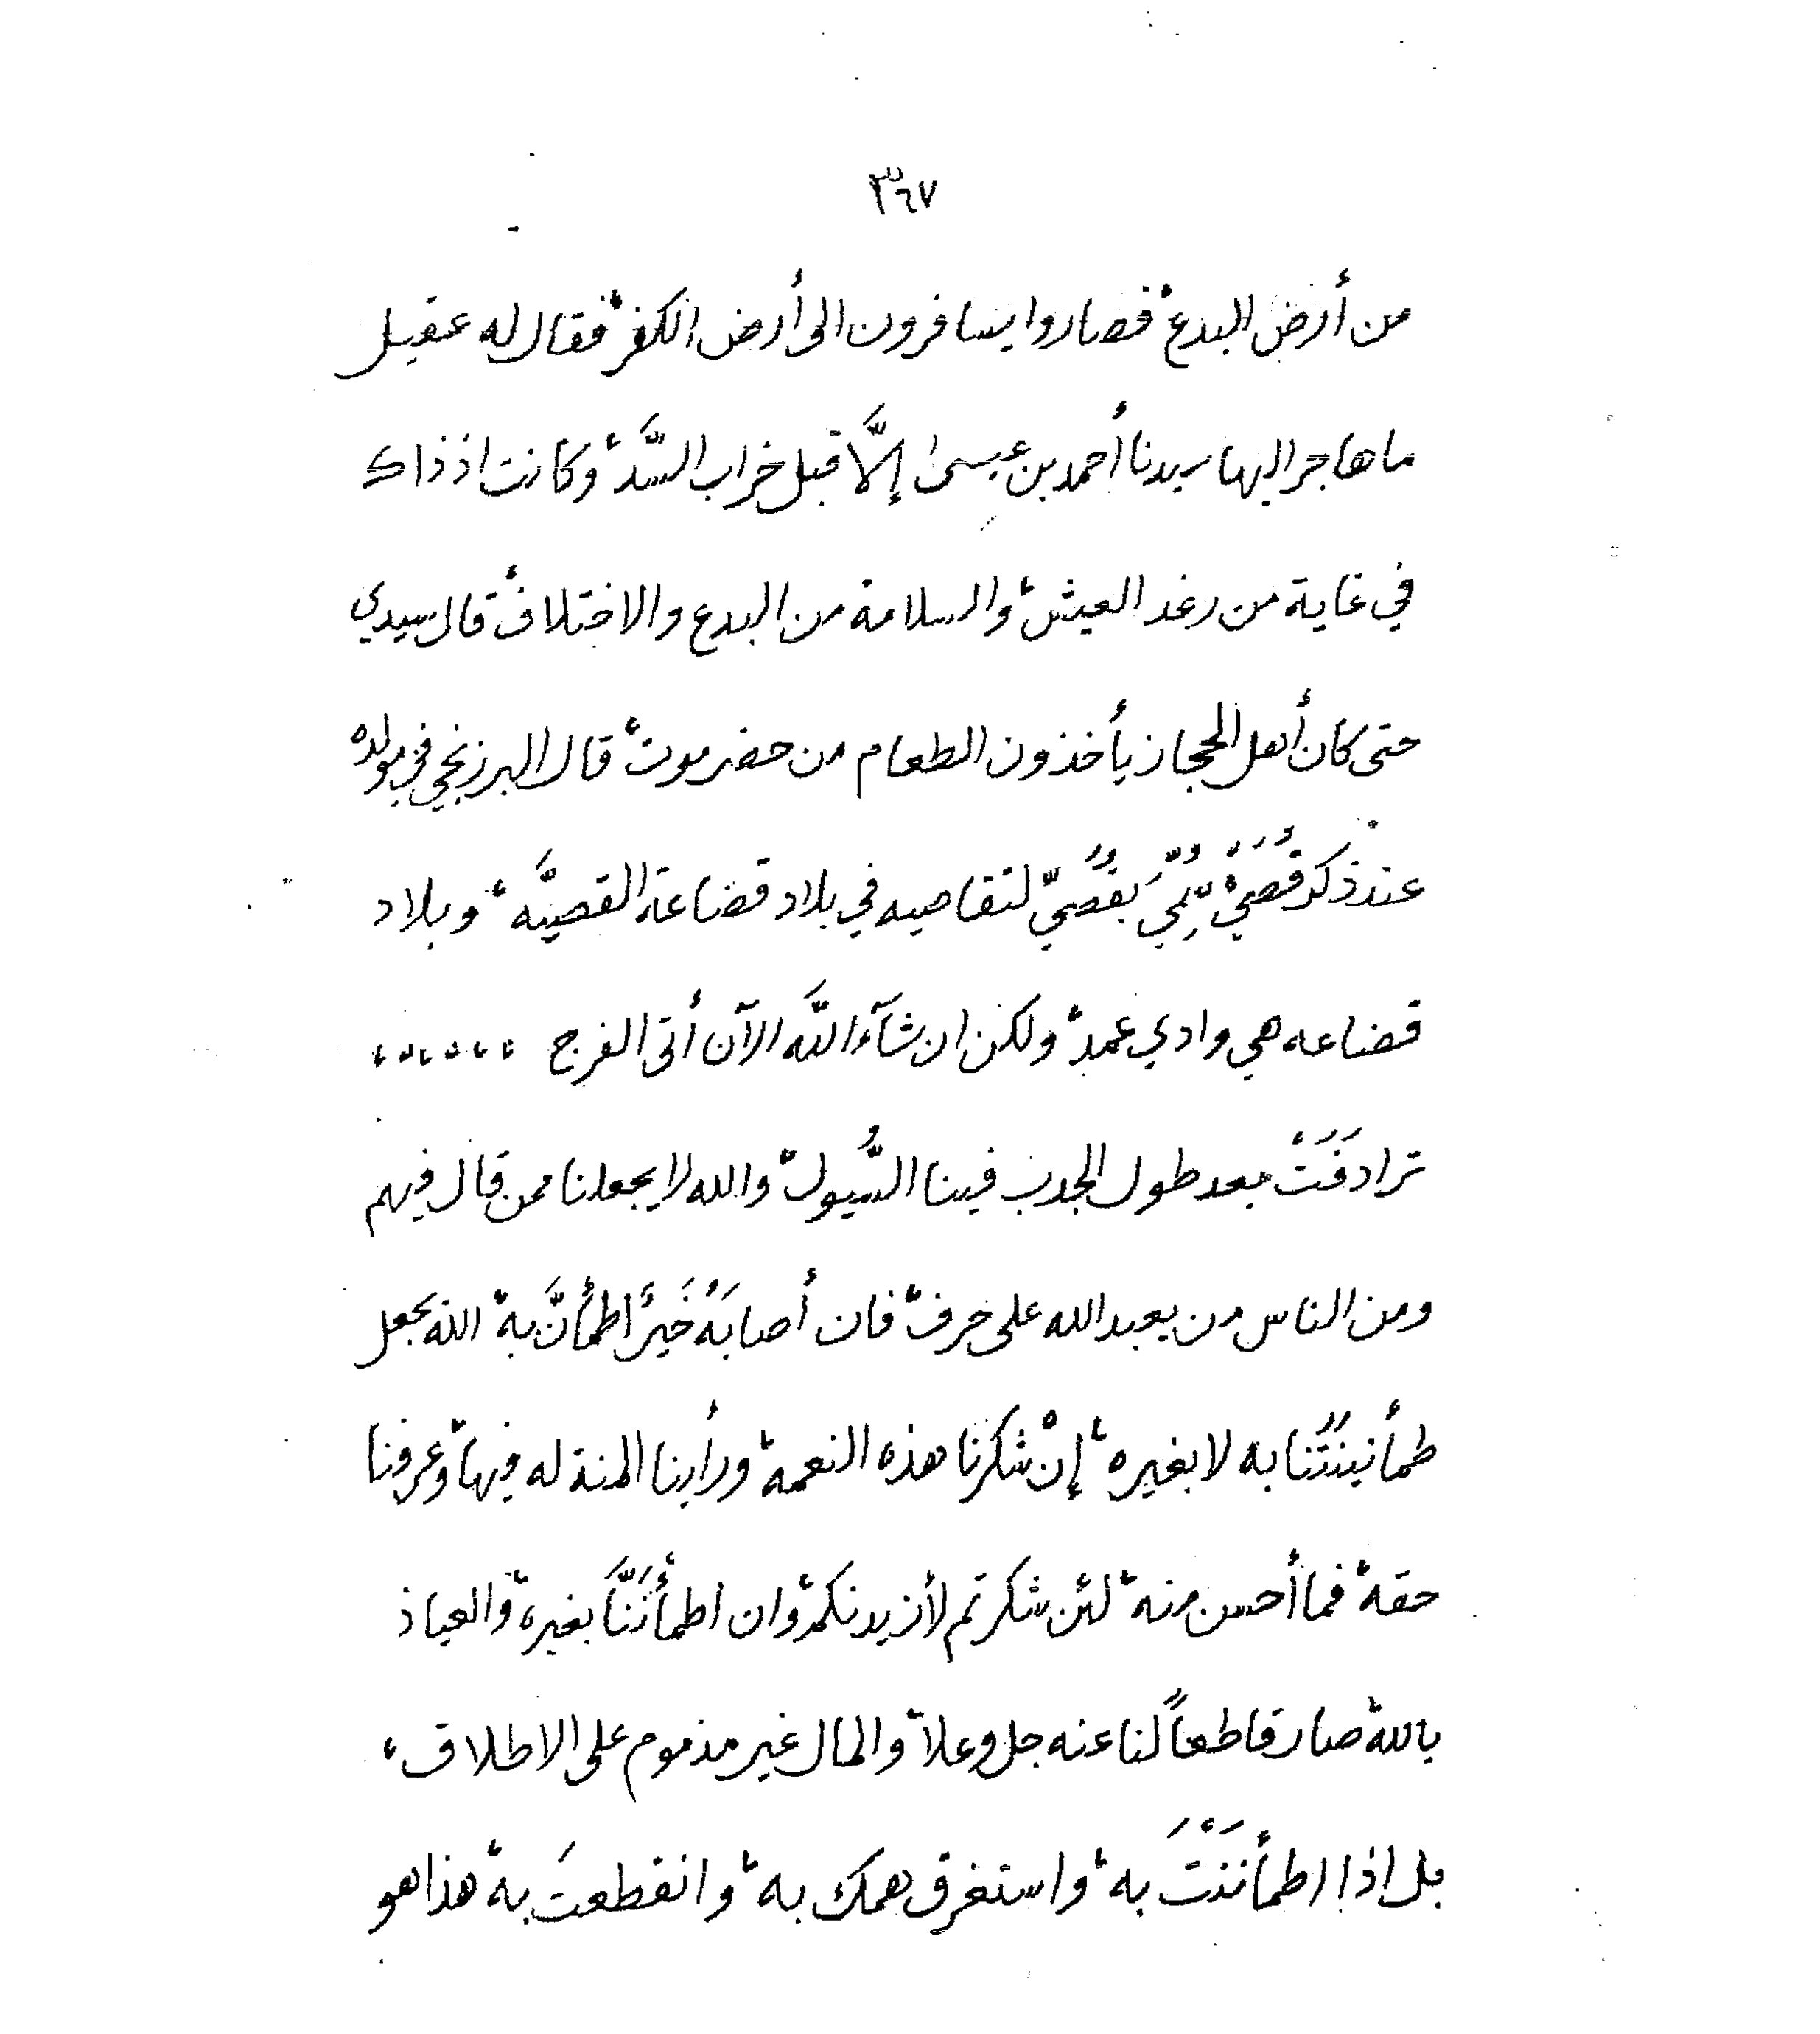 ٣٦٧
من أرض البدع، فصاروا يسافرون الى أرض الكفر، فقال له عقيل
ما هاجر اليها سيدنا أحمد بن عيسى إلَّا قبل خراب السَّد، وكانت اذ ذاك
في غاية من رغد العيش، والسلامة من البدع والاختلاف، قال سيدي
حتى كان أهل الحجاز يأخذون الطعام من حضرموت، قال البرزنجي في مولده
عند ذكر قُصَيْ، سُمِّيَ بقُصَيّ لتقاصيه في بلاد قضاعة القصيَّه، وبلاد
قضاعه هي وادي عمد، ولكن ان شآء اللَّه الآن أتى الفرج ،،،،،،
ترادفَتْ بعد طول الجدب فينا السُّيول، والله لا يجعلنا ممن قال فيهم
ومن الناس من يعبد الله على حرف، فان أصابَهُ خَيرٌ اطمأنَّ به، الله يجعل
طمأنينتَنا به لا بغيره، إنْ شكرنا هذه النعمه، ورأينا المنة له فيها، وعرفنا
حقه، فما أحسن منه، لئن شكرتم لأزيدنكم، وان اطمأنَنَّا بغيره، والعياذ
بالله، صار قاطعاً لنا عنه جل وعلا، والمال غير مذموم على الاطلاق،
بل اذا اطمأنَنْتَ به، واستغرق همك به، وانقطعتَ به، هذا هو